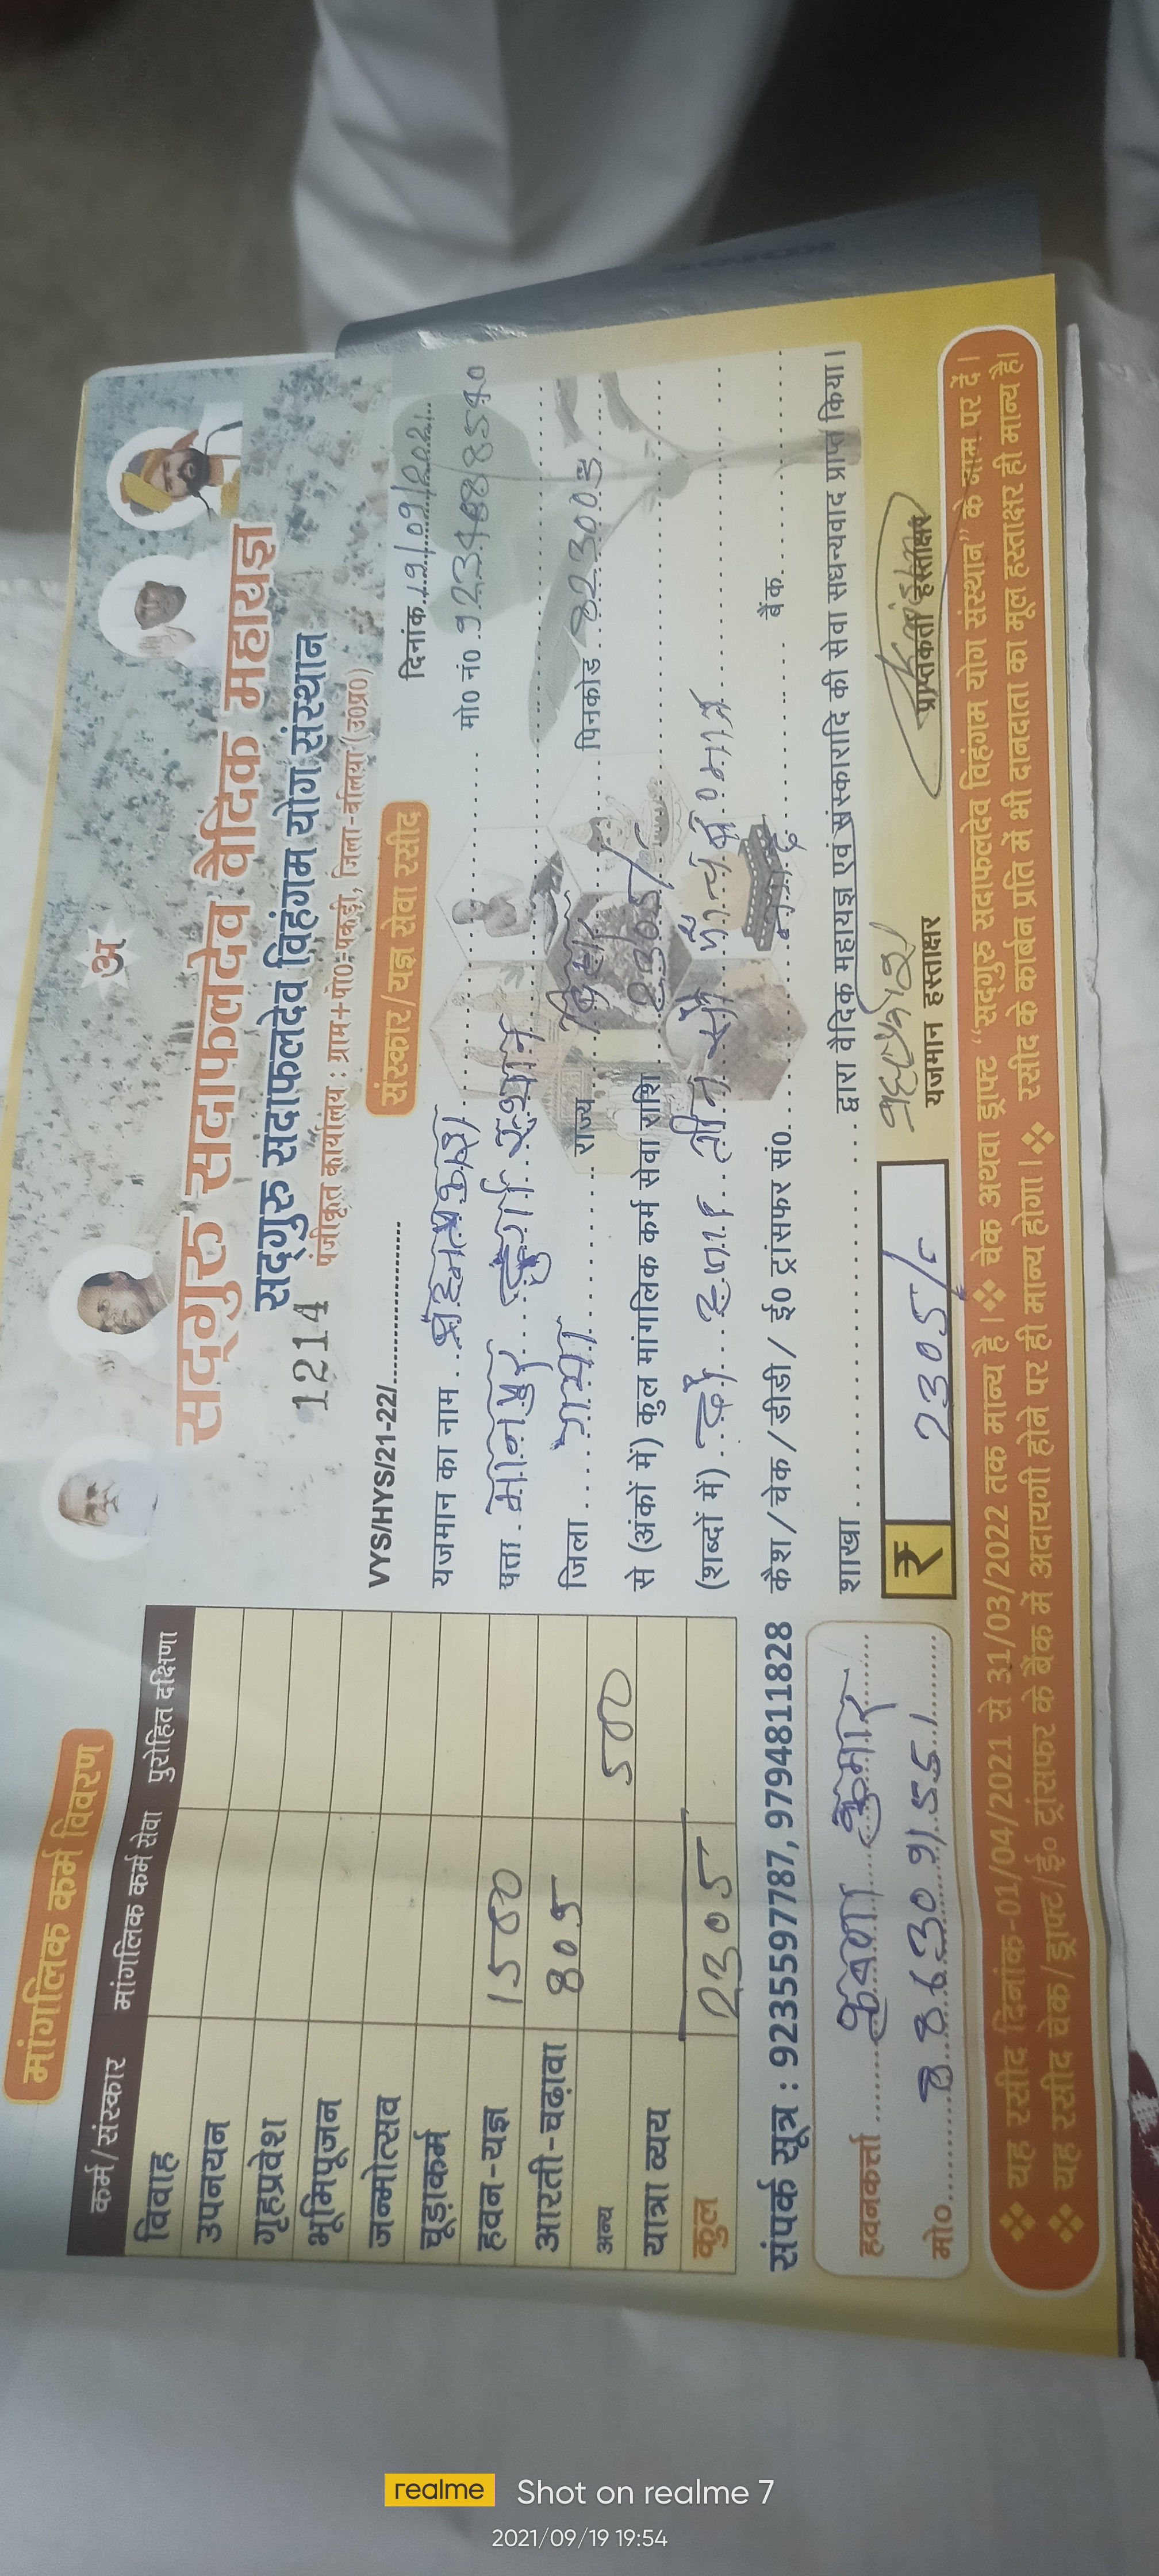 मांगलिक कर्म विवरण
कर्म/संस्कार मांगलिक कर्म सेवा पुरोहित दक्षिणा
विवाह
उपनयन
गृहप्रवेश
भूमिपूजन
जन्मोत्सव
चूड़ाकर्म
हवन-यज्ञ 1500
आरती-चढ़ावा 805
अन्य 500
यात्रा व्यय
कुल 2305
संपर्क सूत्र : 9235597787, 9794811828
हवनकर्त्ता कृष्णा कुमार
मो०
अ
सद्‌गुरु सदाफलदेव वैदिक महायज्ञ
सद्‌गुरु सदाफलदेव विहंगम योग संस्थान
1214 पंजीकृत कार्यालय : ग्राम+पो०=पकड़ी, जिला-बलिया (उ०प्र०)
संस्कार/यज्ञ सेवा रसीद
VYS/HYS/21-22/ दिनांक 19/09/2021
यजमान का नाम मो० नं०
पता मानपुर दुर्गा स्थान
जिला गया राज्य बिहार पिनकोड
से (अंकों में) कुल मांगलिक कर्म सेवा राशि 2305/-
(शब्दों में) दो हजार तीन सौ पाँच रु० मात्र
कैश / चेक / डीडी / ई० ट्रांसफर सं० नगद बैंक
शाखा द्वारा वैदिक महायज्ञ एवं संस्कारादि की सेवा सधन्यवाद प्राप्त किया।
₹ 2305/-
यजमान हस्ताक्षर प्राप्तकर्ता हस्ताक्षर
❖ यह रसीद दिनांक-01/04/2021 से 31/03/2022 तक मान्य है। ❖ चेक अथवा ड्राफ्ट "सद्‌गुरु सदाफलदेव विहंगम योग संस्थान" के नाम पर दें।
❖ यह रसीद चेक/ड्राफ्ट/ई० ट्रांसफर के बैंक में अदायगी होने पर ही मान्य होगा। ❖ रसीद के कार्बन प्रति में भी दानदाता का मूल हस्ताक्षर ही मान्य है।
realme Shot on realme 7
2021/09/19 19:54